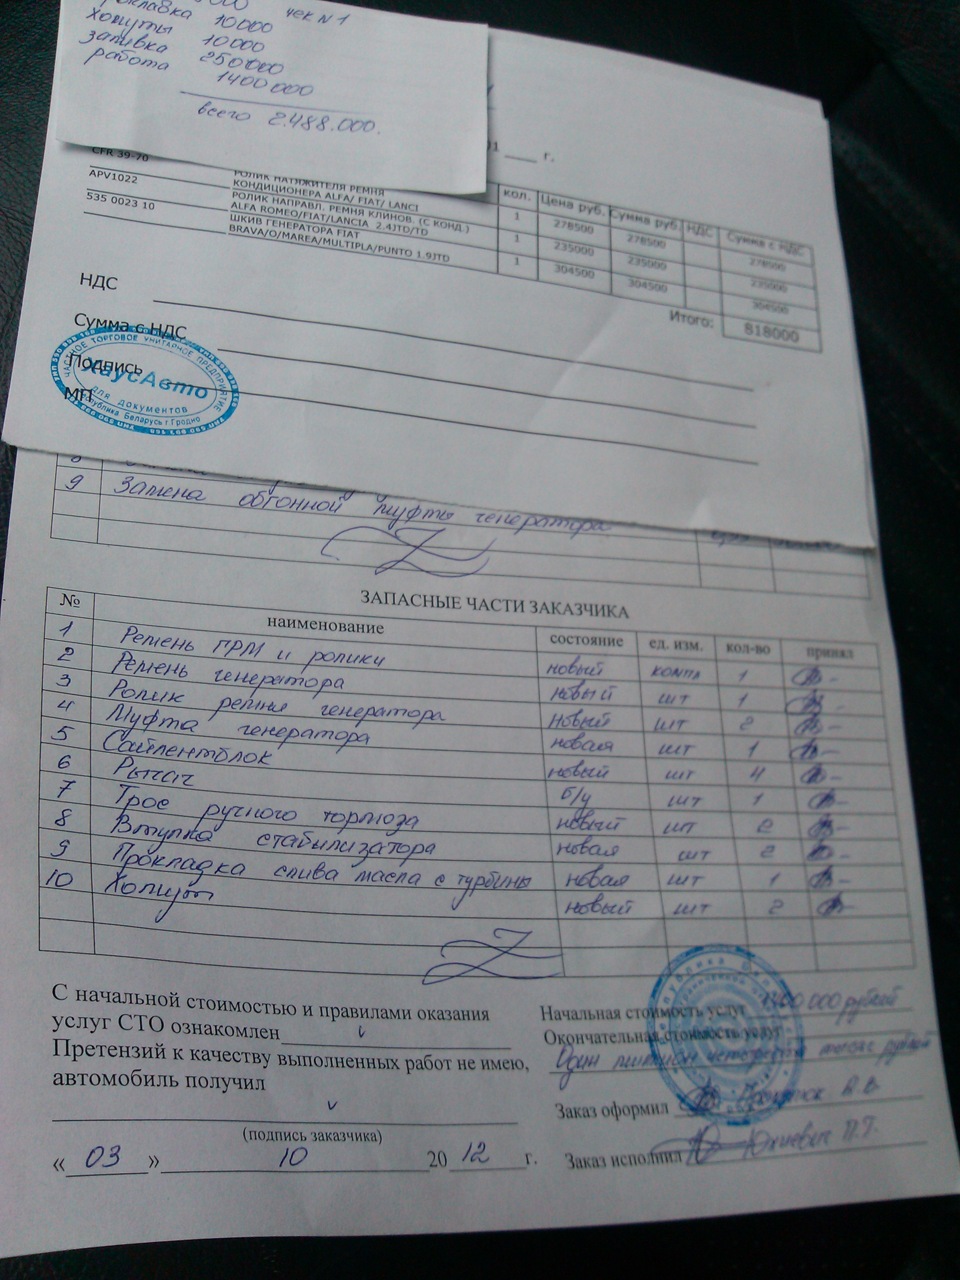 прокладка 10000 чек N 1
хомуты 10000
заливка 250000
работа 1400000
всего 2.488.000.
г.
кол. Цена руб. Сумма руб. НДС Сумма с НДС
CFR 39-70 РОЛИК НАТЯЖИТЕЛЯ РЕМНЯ
КОНДИЦИОНЕРА ALFA/ FIAT/ LANCI 1 278500 278500 278500
APV1022 РОЛИК НАПРАВЛ. РЕМНЯ КЛИНОВ. (С КОНД.)
ALFA ROMEO/FIAT/LANCIA 2.4JTD/TD 1 235000 235000 235000
535 0023 10 ШКИВ ГЕНЕРАТОРА FIAT
BRAVA/O/MAREA/MULTIPLA/PUNTO 1.9JTD 1 304500 304500 304500
Итого: 818000
НДС
Сумма с НДС
Подпись
МП
ЧАСТНОЕ ТОРГОВОЕ УНИТАРНОЕ ПРЕДПРИЯТИЕ
ХаусАвто
ДЛЯ ДОКУМЕНТОВ
Республика Беларусь г.Гродно
8
9 Замена обгонной муфты генератора
ЗАПАСНЫЕ ЧАСТИ ЗАКАЗЧИКА
№ наименование состояние ед. изм. кол-во принял
1 Ремень ГРМ и ролики новый компл 1
2 Ремень генератора новый шт 1
3 Ролик ремня генератора новый шт 2
4 Муфта генератора новая шт 1
5 Сайлентблок новый шт 4
6 Рычаг б/у шт 1
7 Трос ручного тормоза новый шт 2
8 Втулка стабилизатора новая шт 2
9 Прокладка слива масла с турбины новая шт 1
10 Хомут новый шт 2
С начальной стоимостью и правилами оказания
услуг СТО ознакомлен v
Претензий к качеству выполненных работ не имею,
автомобиль получил
v
(подпись заказчика)
« 03 » 10 20 12 г.
Начальная стоимость услуг 1300 000 рублей
Окончательная стоимость услуг
Один миллион четыреста тысяч рублей
Заказ оформил
Заказ исполнил Юхневич П.Г.